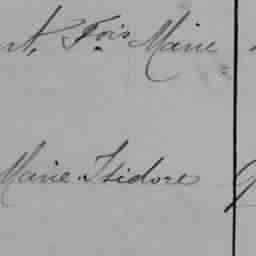 t, Fois Marie
Marie Isidore